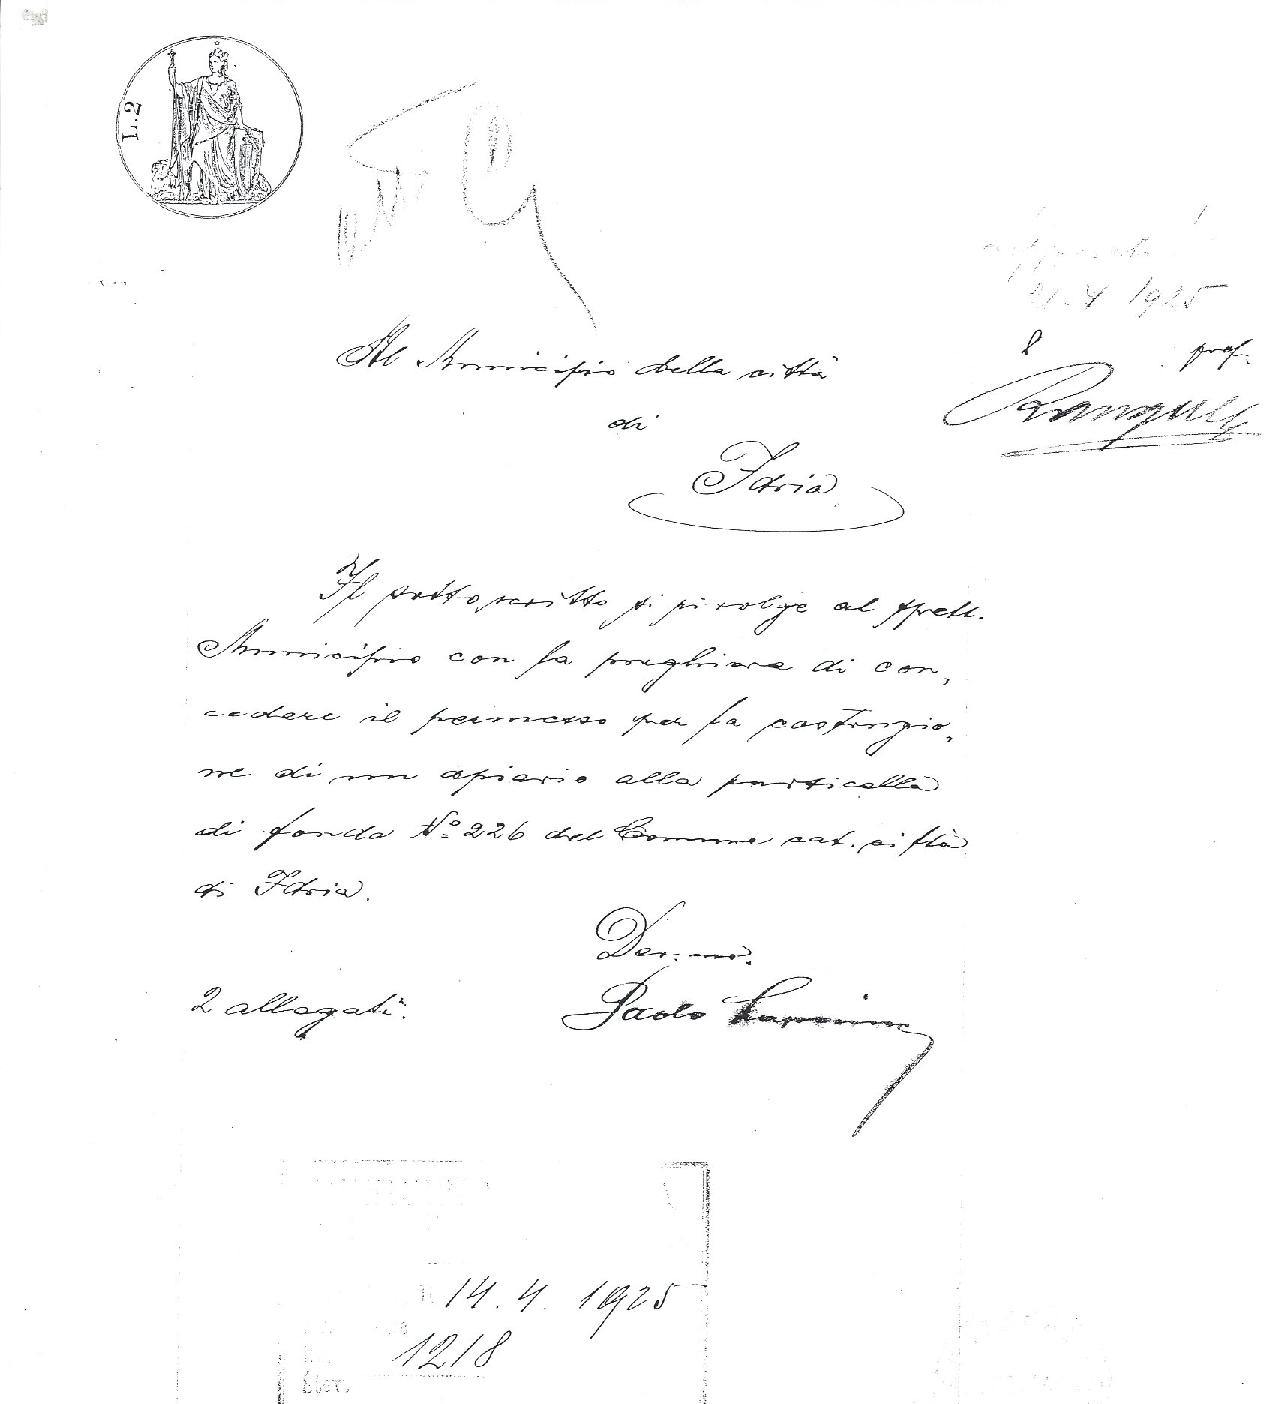 L. 2
21.4 1925
pref.
Al Municipio della città
di
Idria
Il sottoscritto si rivolge al spett.
Municipio con la preghiera di con,
cedere il permesso per la costruzio,
ne di un apiario alla particella
di fondo No 226 del Comune cat. città
di Idria.
Dev:mo:
2 allegati.
Paolo
14. 4. 1925
1218